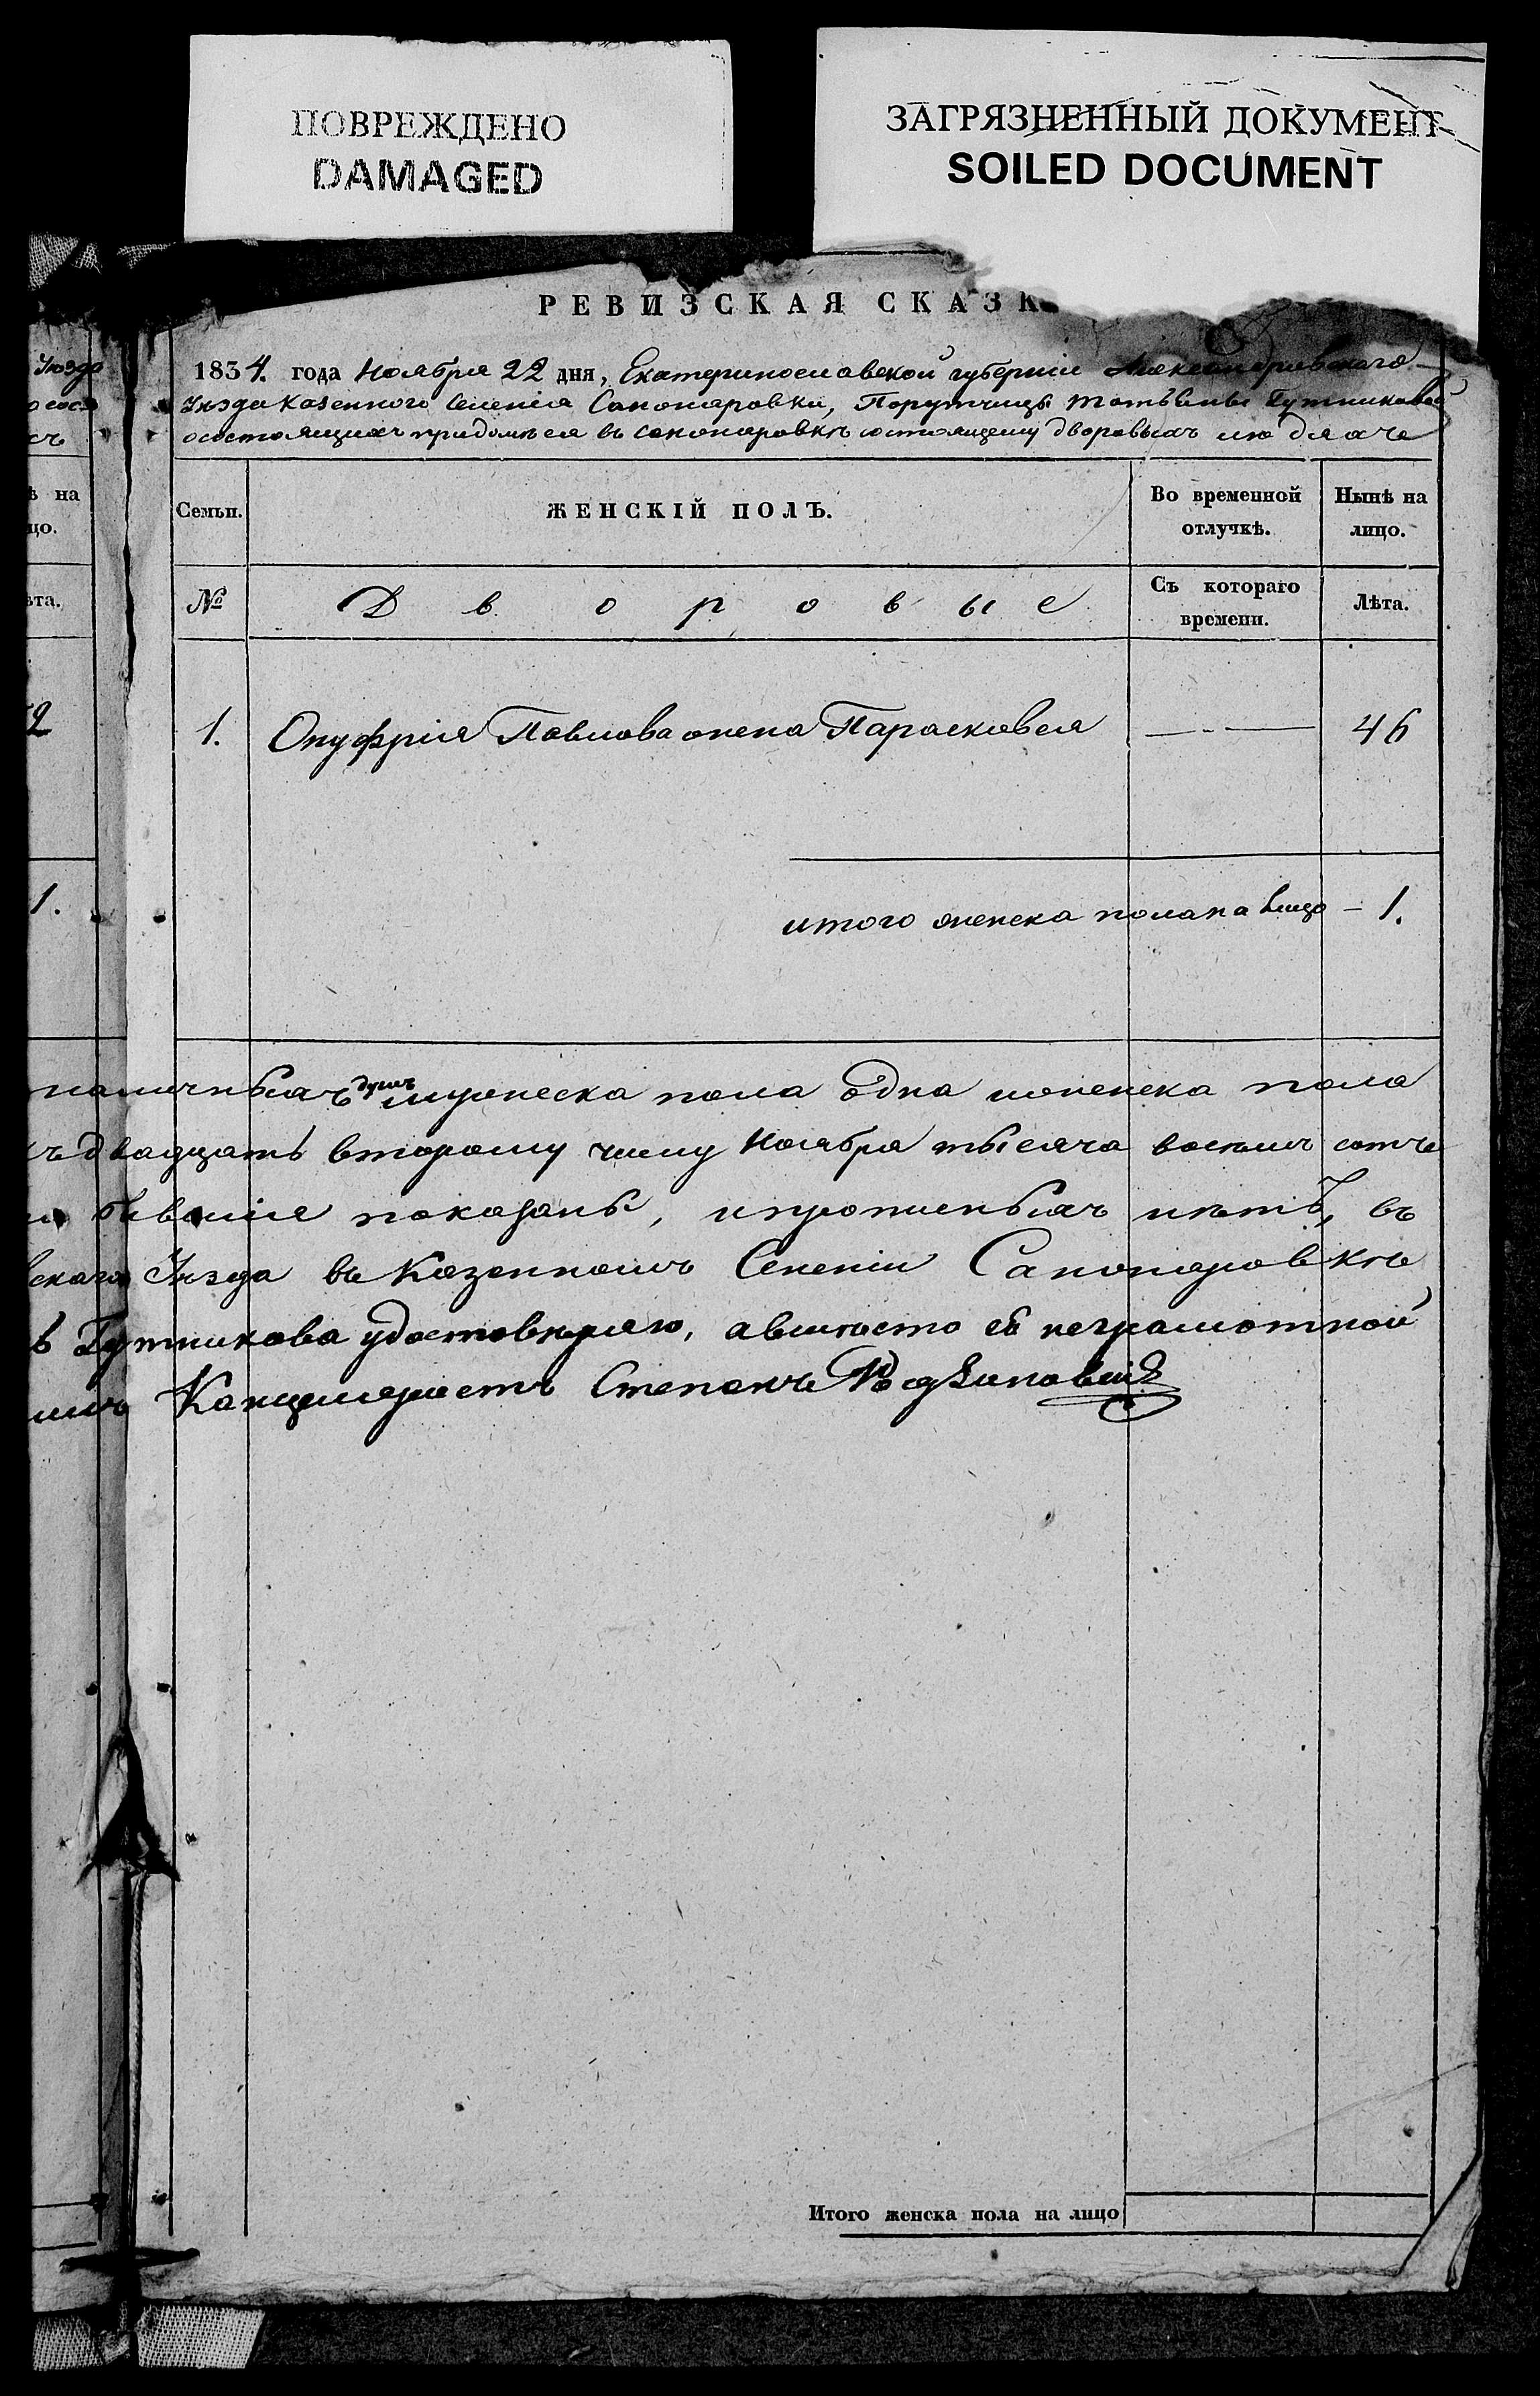 ПОВРЕЖДЕНО
DAMAGED
ЗАГРЯЗНЕННЫЙ ДОКУМЕНТ
SOILED DOCUMENT
РЕВИЗСКАЯ СКАЗК
1834. года Ноября 22 дня, Екатеринославской губерніи Александровского
Уѣзда Казенного Селенія Сапонаровки, Порутчицы Татьяны Гутниковой
осостоящихъ придомѣ ея въ Сапонаровкѣ состоящему дворовыхъ людяхъ
Уѣзда
ѣ на
цо.
Семьи.
ЖЕНСКІЙ ПОЛЪ.
Во временной отлучкѣ.
Нынѣ на лицо.
ѣта.
№
Дворовые
Съ котораго времени.
Лѣта.
2
1. Онуфрія Павлова жена Парасковея 46
1.
итого женска пола на лицо – 1.
наличныхъ душъ мужеска пола одна иженска пола
ъ двадцать второму числу Ноября тысяча восемь сотъ
бывшіе показаны, ипрописныхъ нѣтъ, въ
вскаго Уѣзда въ Казенномъ Селеніи Сапонаровкѣ
Гутникова удостовѣряю, авмѣсто её неграмотной
Канцеляристъ Степанъ
Итого женска пола на лицо